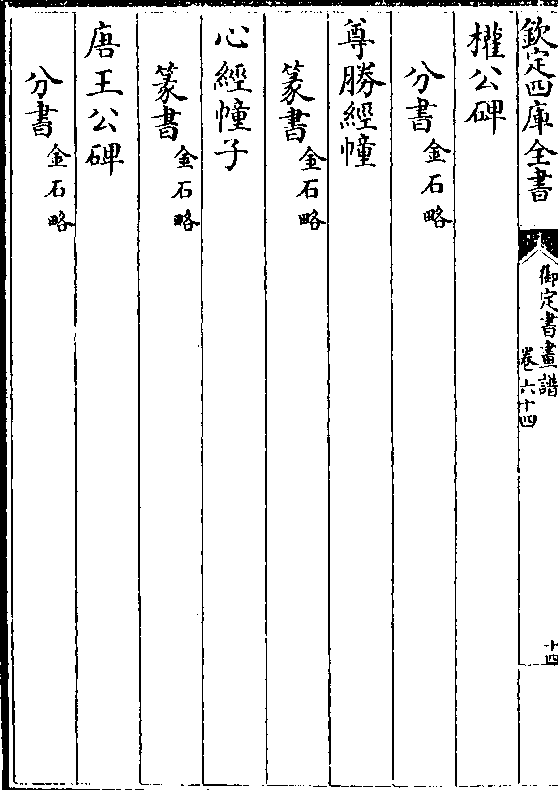 欽定四庫全書
御定書畫譜
卷六十四
十四
權公碑
分書金石略
尊勝經幢
篆書金石略
心經幢子
篆書金石略
唐王公碑
分書金石略